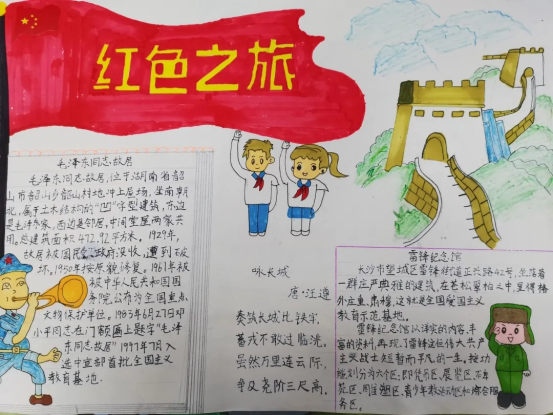 红色之旅
毛泽东同志故居
毛泽东同志故居,位于湖南省韶
山市韶山乡韶山村土地冲上屋场,坐南朝
北,属于土木结构的"凹"字型建筑,东边
是毛泽东家,西边是邻居,中间堂屋两家共
用,总建筑面积472.92平方米。1929年,
故居被国民党政府没收,遭到破
坏,1950年按原貌修复。1961年被
被中华人民共和国国
务院公布为全国重点
文物保护单位。1983年6月27日
小平同志在门额匾上题字"毛泽
东同志故居"1997年7月入
选中宣部首批全国主义
教育基地.
咏长城
唐·汪遵
秦筑长城比铁牢,
蕃戎不敢过临洮。
虽然万里连云际,
争及尧阶三尺高。
雷锋纪念馆
长沙市望城区雷锋街道正兴路42号,坐落着
一群庄严典雅的建筑,在苍松翠柏之中显得格
外庄重、肃穆,这就是全国爱国主义
教育示范基地。
雷锋纪念馆以详实的内容,丰
富的资料,再现了雷锋这位伟大共产
主义战士短暂而平凡的一生。按功
能划分为六个区:即
区、展览区、
苑区、
青少年
和综合服
务区。